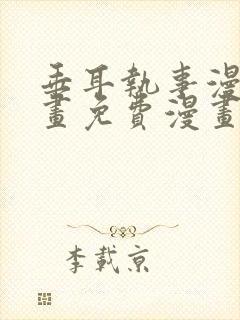 垂耳執事漫
畫免費漫畫
李載京